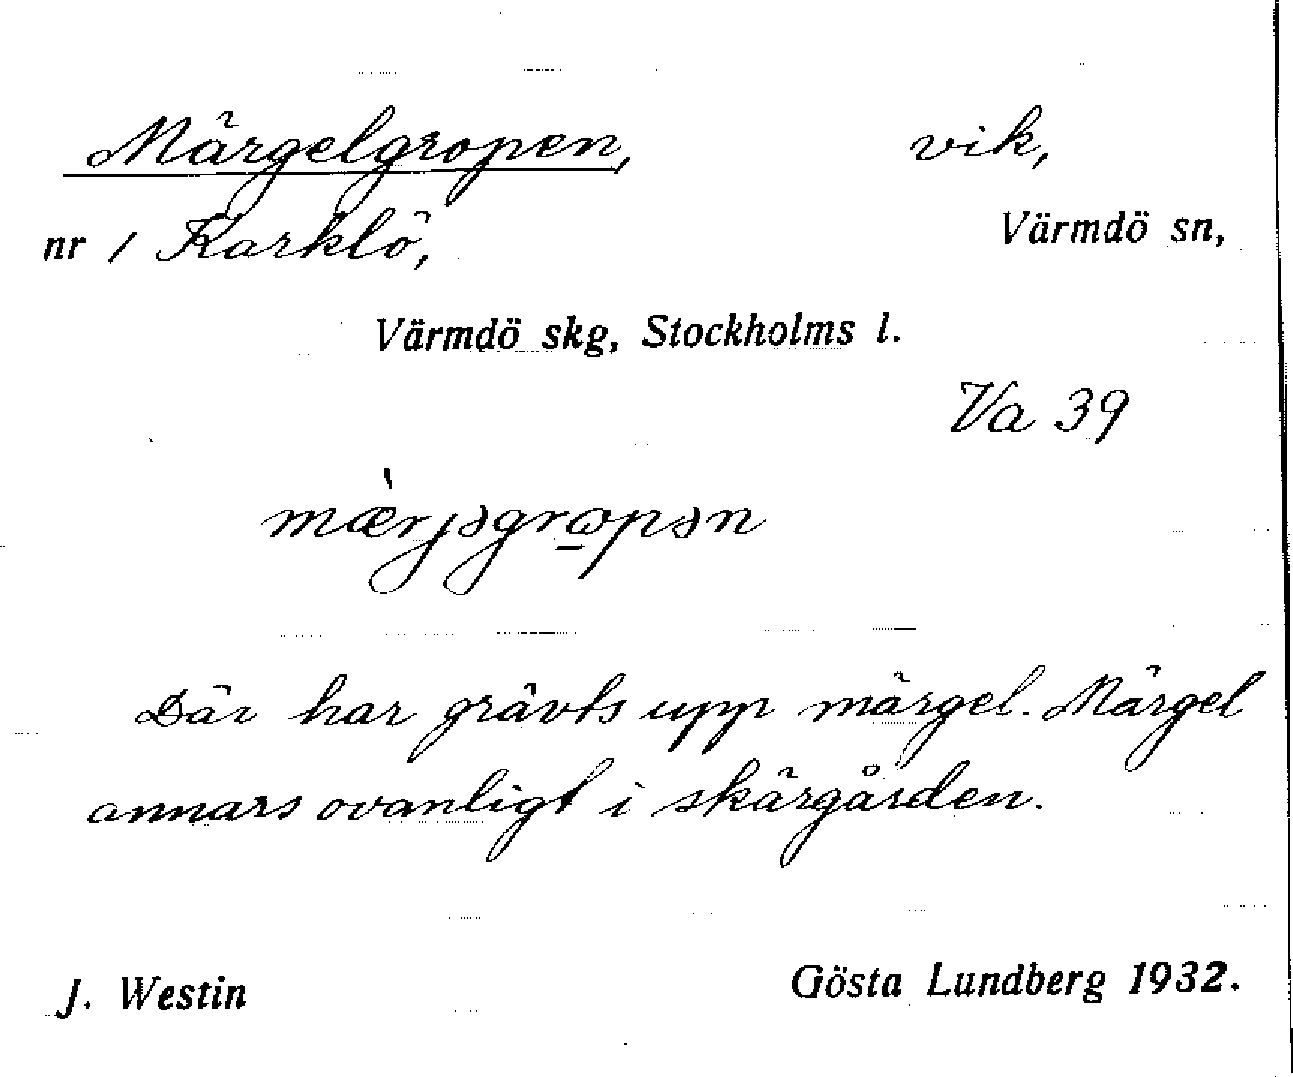 Märgelgropen, vik,
nr 1 Karklö, Värmdö sn,
Värmdö skg, Stockholms l.
Va 39
mæ̀rjəgrɷpən
Där har grävts upp märgel. Märgel
annars ovanligt i skärgården.
J. Westin Gösta Lundberg 1932.